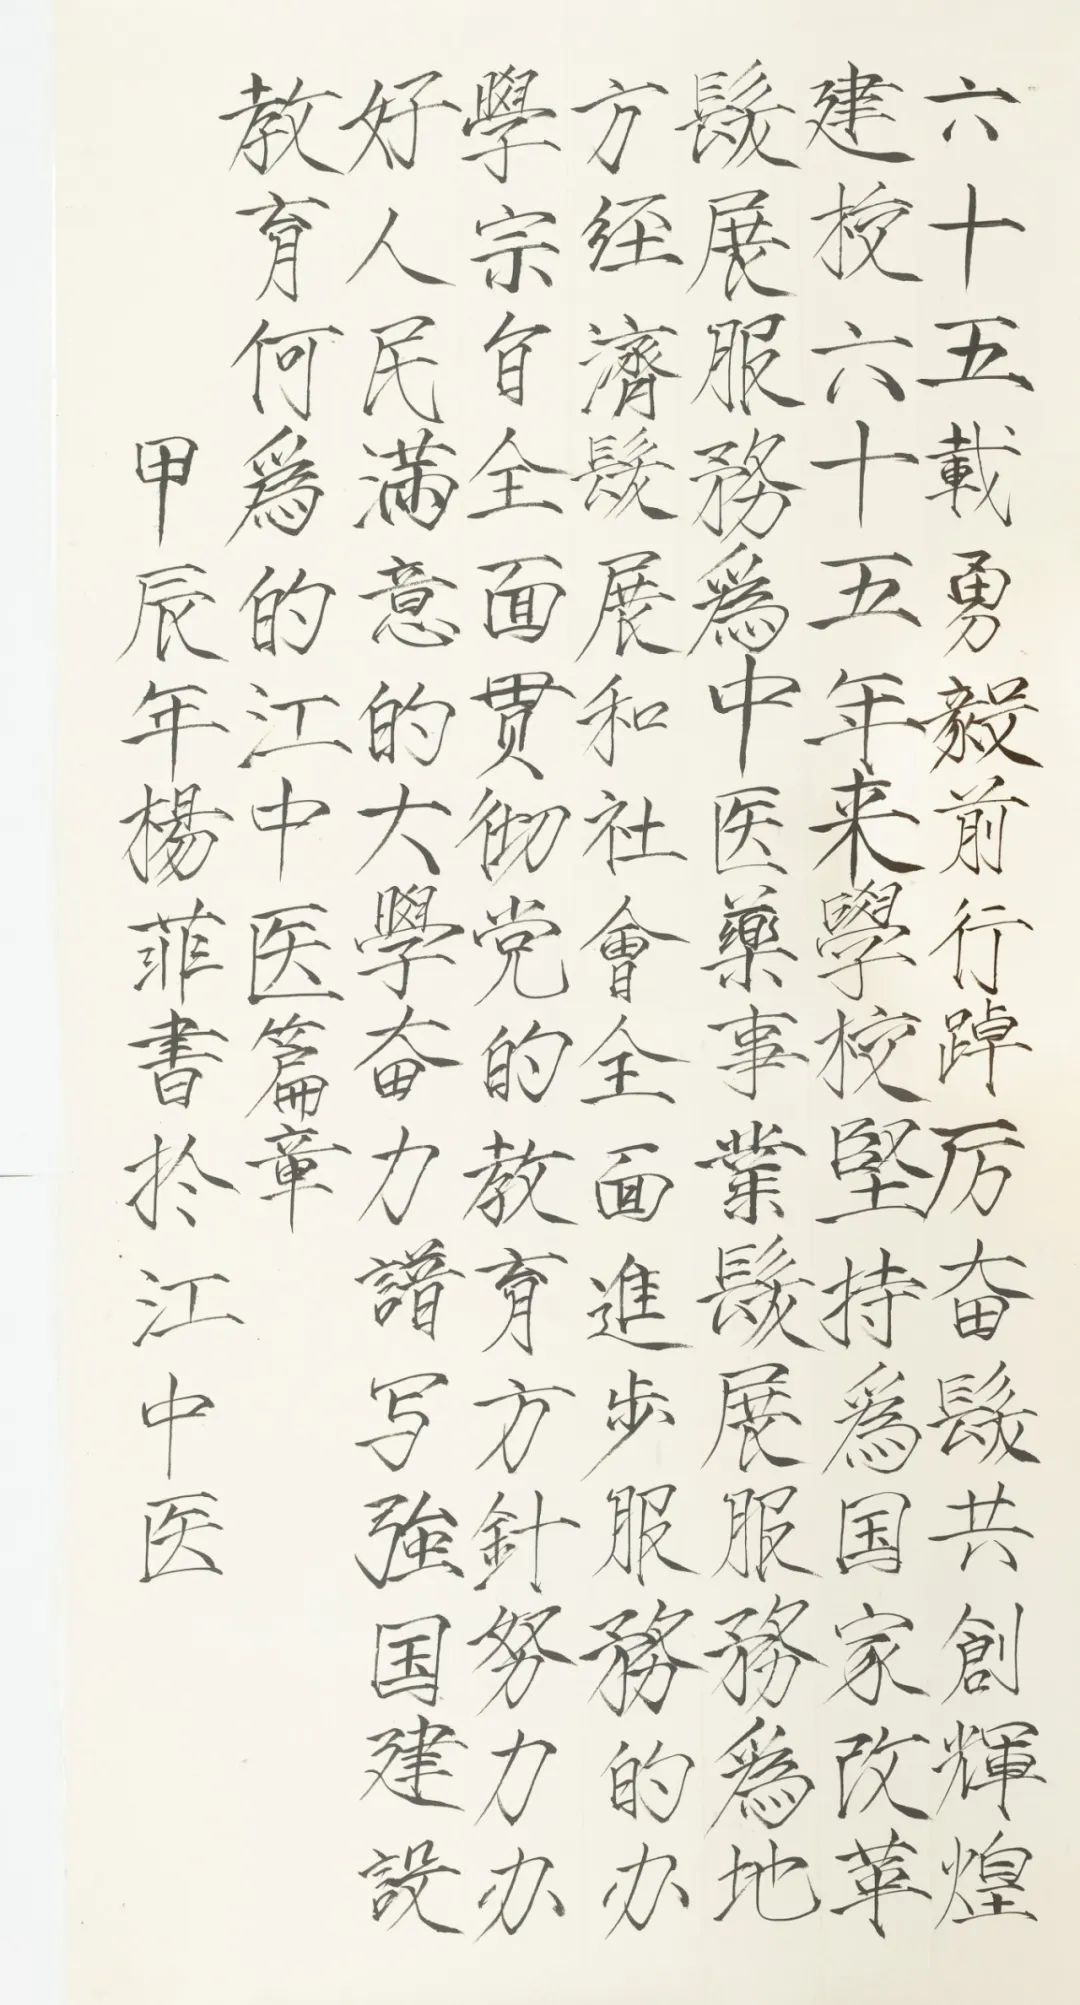 六十五載勇毅前行踔厉奋髮共創輝煌
建校六十五年来學校堅持爲国家改革
髮展服務爲中医藥事業髮展服務爲地
方经濟髮展和社會全面進步服務的办
學宗旨全面贯彻党的教育方針努力办
好人民满意的大學奋力譜写強国建設
教育何爲的江中医篇章
甲辰年楊菲書於江中医